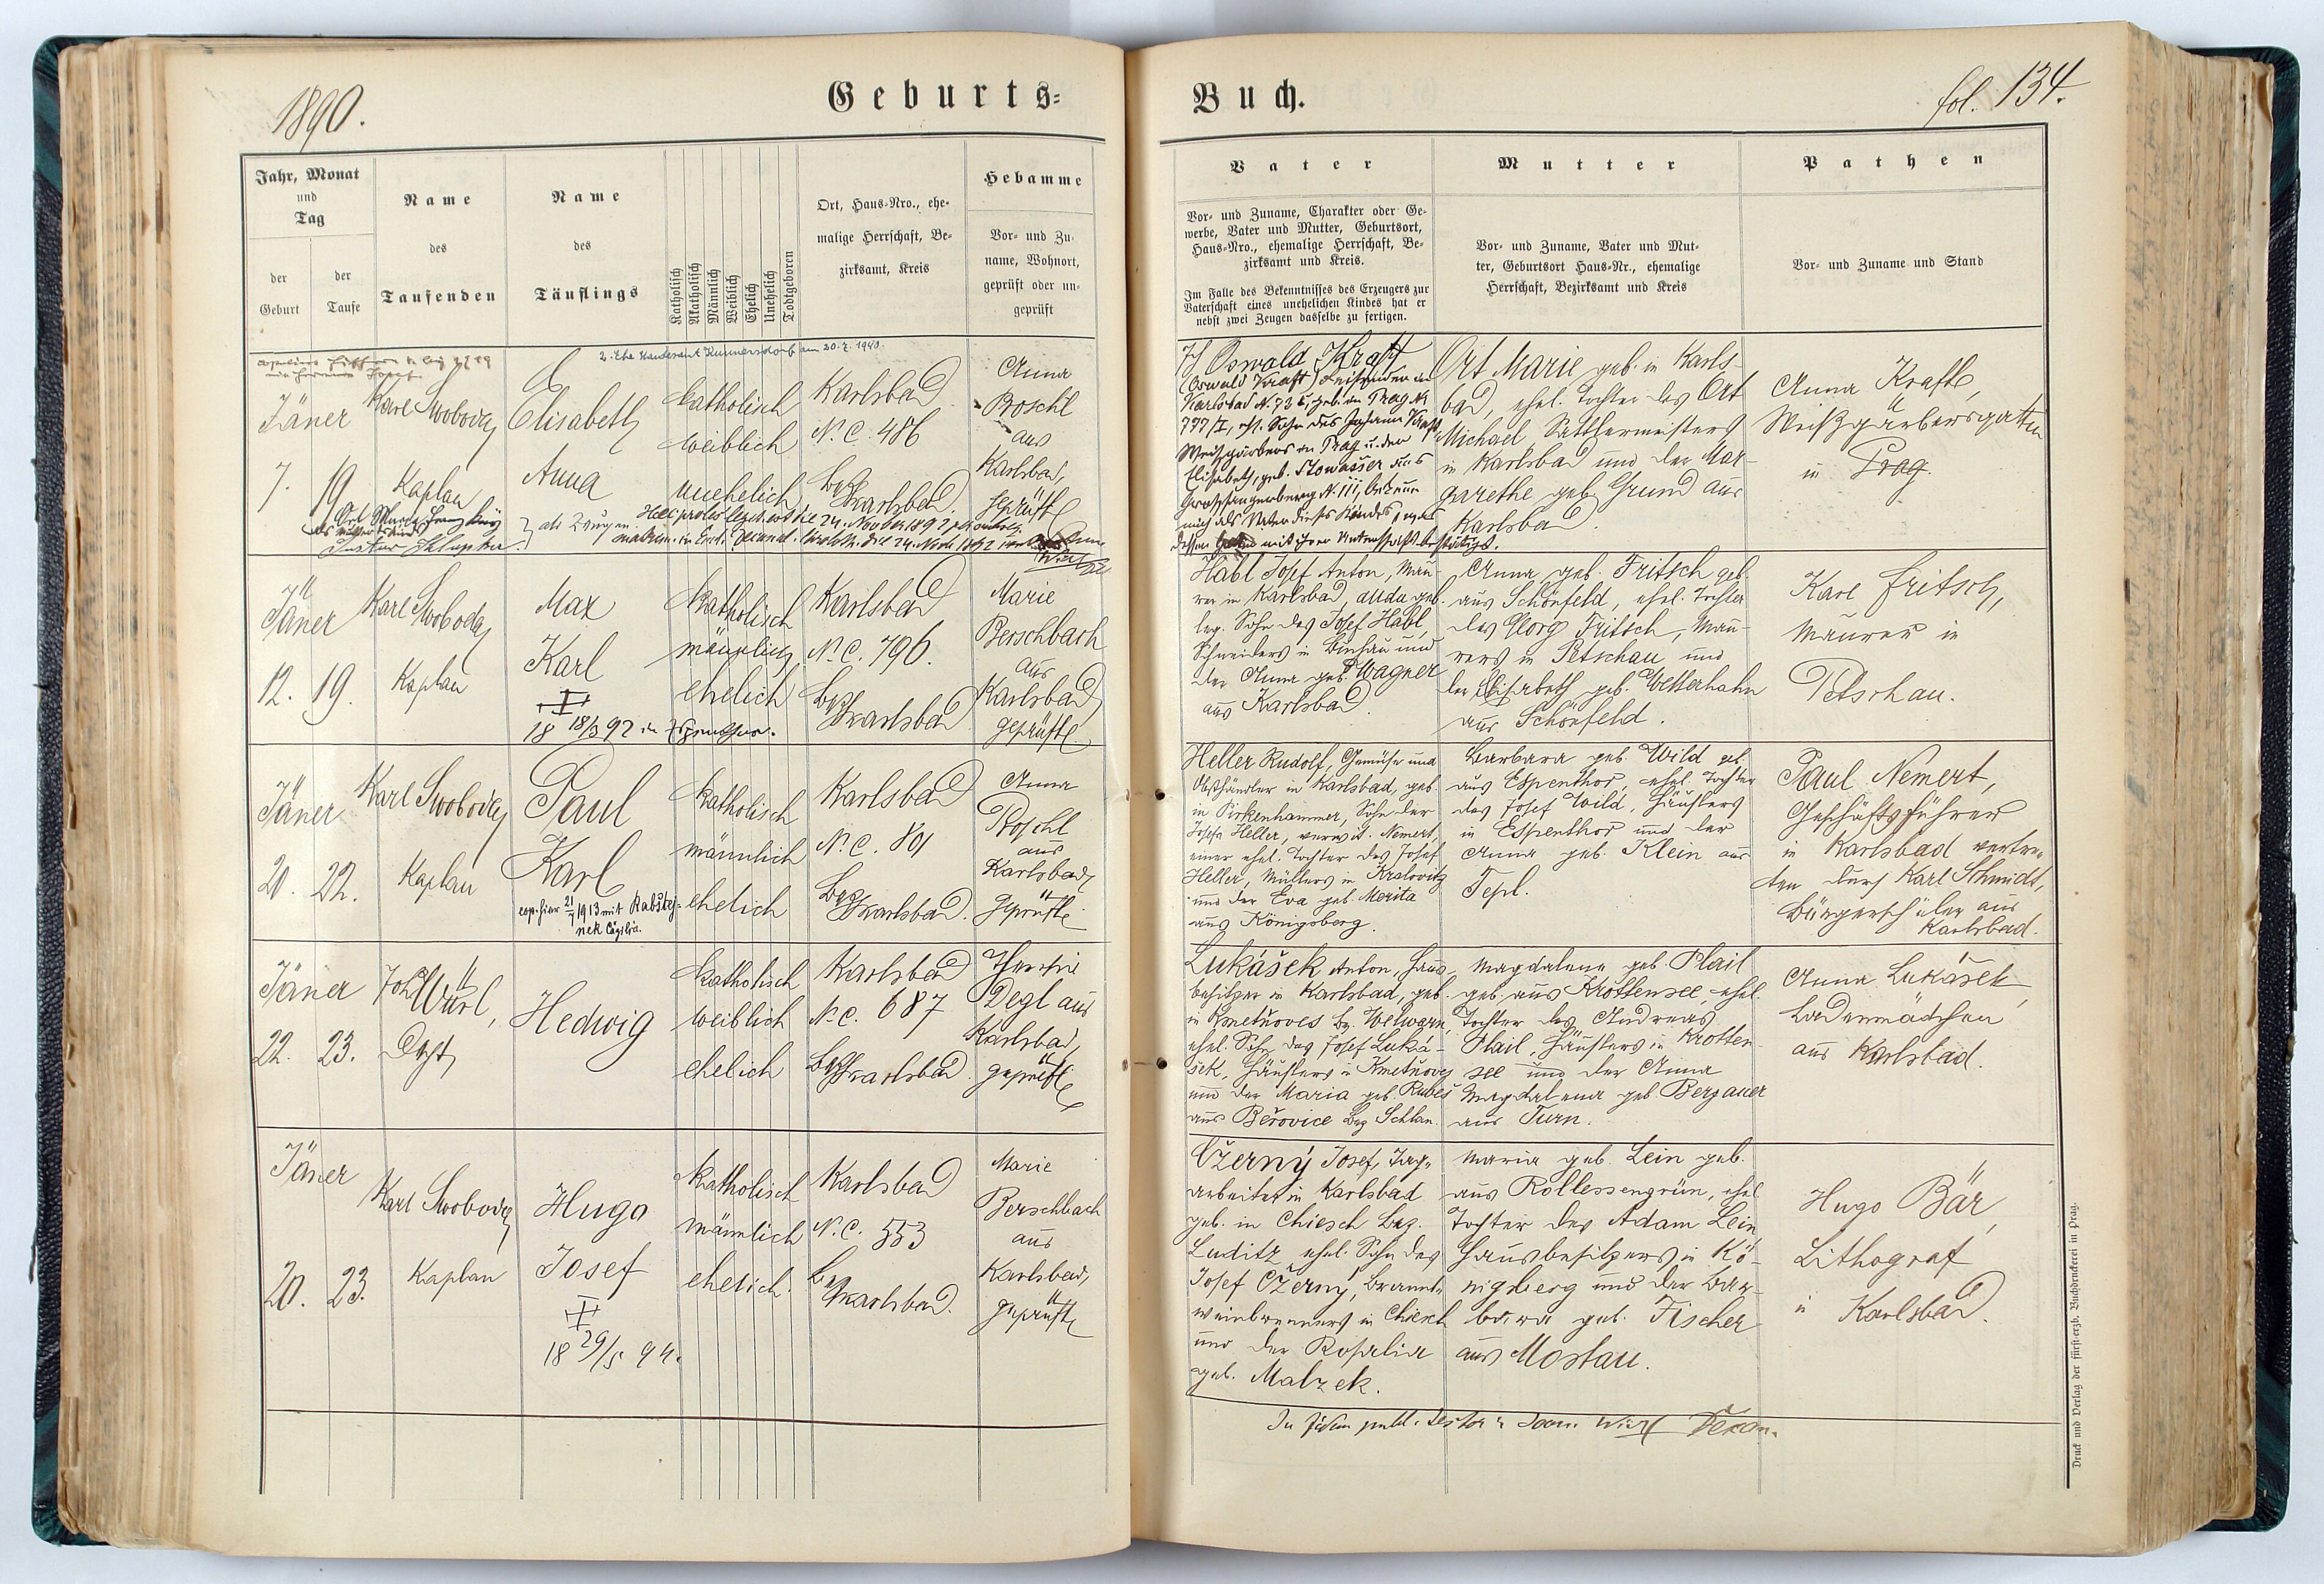 1890.
Geburts-
Jahr, Monat
und
Tag
der
Geburt
der
Taufe
Name
des
Taufenden
Name
des
Täuflings
Katholisch
Akatholisch
Männlich
Weiblich
Ehelich
Unehelich
Todtgeboren
Ort, Haus-Nro., ehe-
malige Herrschaft, Be-
zirksamt, Kreis
Hebamme
Vor- und Zu-
name, Wohnort,
geprüft oder un-
geprüft
2. Ehe Standesamt Kunnersdorf am 20.7.1940.
Jäner
7. 19
Karl Swoboda
Kaplan
Elisabeth
Anna
katholisch
weiblich
unehelich
Karlsbad
N. C. 486
Bez Karlsbad.
Anna
Poschl
aus
Karlsbad,
geprüft
als Zeugen.
Jäner
12. 19.
Karl Swoboda
Kaplan
Max
Karl
18 18/3 92 in
katholisch
männlich
ehelich
Karlsbad
N. C. 796.
Bez Karlsbad
Marie
Berschbach
aus
Karlsbad,
geprüft
Jäner
20. 22.
Karl Swoboda
Kaplan
Paul
Karl
cop. hier 21/7 1913 mit Rabštej-
nek Cäzilia.
katholisch
männlich
ehelich
Karlsbad
N. C. 801
Bez Karlsbad.
Anna
Poschl
aus
Karlsbad,
geprüft
Jäner
22. 23.
Joh Würl,
Dezt
Hedwig
katholisch
weiblich
ehelich
Karlsbad
N. C. 687
Bez Karlsbad.
Degl aus
Karlsbad,
geprüft
Jäner
20. 23.
Karl Swoboda
Kaplan
Hugo
Josef
18 29/5 94.
katholisch
männlich
ehelich.
Karlsbad
N. C. 553
Bez Karlsbad.
Marie
Berschbach
aus
Karlsbad,
geprüft
Buch.
fol. 134.
Vater
Vor- und Zuname, Charakter oder Ge-
werbe, Vater und Mutter, Geburtsort,
Haus-Nro., ehemalige Herrschaft, Be-
zirksamt und Kreis.
Im Falle des Bekenntnisses des Erzeugers zur
Vaterschaft eines unehelichen Kindes hat er
nebst zwei Zeugen dasselbe zu fertigen.
Mutter
Vor- und Zuname, Vater und Mut-
ter, Geburtsort Haus-Nr., ehemalige
Herrschaft, Bezirksamt und Kreis
Pathen
Vor- und Zuname und Stand
Ich Oswald Kraft
(Oswald Kraft) in
Karlsbad N. 736, geb. in Prag N.
777/I, ehl. Sohn des Johann Kraft,
Weißgärbers in Prag u. der
Elisabeth, geb. Stowasser aus
mich als Vater dieses Kindes
mit ihrer Unterschrift bestätigt.
Ort Marie geb. in Karls-
bad, ehel. Tochter des Ort
Michael Sattlermeisters
in Karlsbad und der Mar-
garethe geb. Grund aus
Karlsbad.
Anna Kraft,
Weißgärbersgattin
in Prag.
Habl Josef Anton, Mau-
rer in Karlsbad, geb.
leg. Sohn des Josef Habl,
Schneiders in Buchau und
der Anna geb. Wagner
aus Karlsbad.
Anna geb. Fritsch geb.
aus Schönfeld, ehel. Tochter
des Georg Fritsch, Mau-
rers in Petschau und
der Elisabeth geb. Wetterhahn
aus Schönfeld.
Karl Fritsch,
Maurer in
Petschau.
Heller Rudolf, Gemüse und
Obsthändler in Karlsbad, geb.
in Pirkenhammer, Sohn der
Josefa Heller, verwit. Nemert,
einer ehel. Tochter des Josef
Heller, Müllers in Kralowitz
und der Eva geb. Merita
aus Königsberg.
Barbara geb. Wild geb.
aus Espenthor, ehel. Tochter
des Josef Wild, Häuslers
in Espenthor und der
Anna geb. Klein aus
Tepl.
Paul Nemert,
Geschäftsführer
in Karlsbad vertre-
ten durch Karl Schmidt,
Bürgerschüler aus
Karlsbad.
Lukášek Anton, Haus-
besitzer in Karlsbad, geb.
in Kmetňoves Bz. Welwarn,
ehel. Sohn des Josef Luká-
šek, Häuslers in Kmetňoves
und der Maria geb. Rubeš
aus Beřovice Bez Schlan.
Magdalena geb. Plail
geb. aus Krottensee, ehel.
Tochter des Andreas
Plail, Häuslers in Krotten-
see und der Anna
Magdalena geb Bergauer
aus Turn.
Anna Lukášek,
Ladenmädchen
aus Karlsbad.
Czerný Josef, Tag-
arbeiter in Karlsbad
geb. in Chiesch Bez.
Luditz ehel. Sohn des
Josef Czerný, Brannt-
weinbrenners in Chiesch
und der Rosalia
geb. Malzek.
Maria geb. Lein geb.
aus Rollessengrün, ehel
Tochter des Adam Lein
Hausbesitzers in Kö-
nigsberg und der Bar-
bara geb. Fischer
aus Mostau.
Hugo Bär,
Lithograf
in Karlsbad.
In fidem publ. testor Joan. Würl Dekan.
Druck und Verlag der fürst-erzb. Buchdruckerei in Prag.